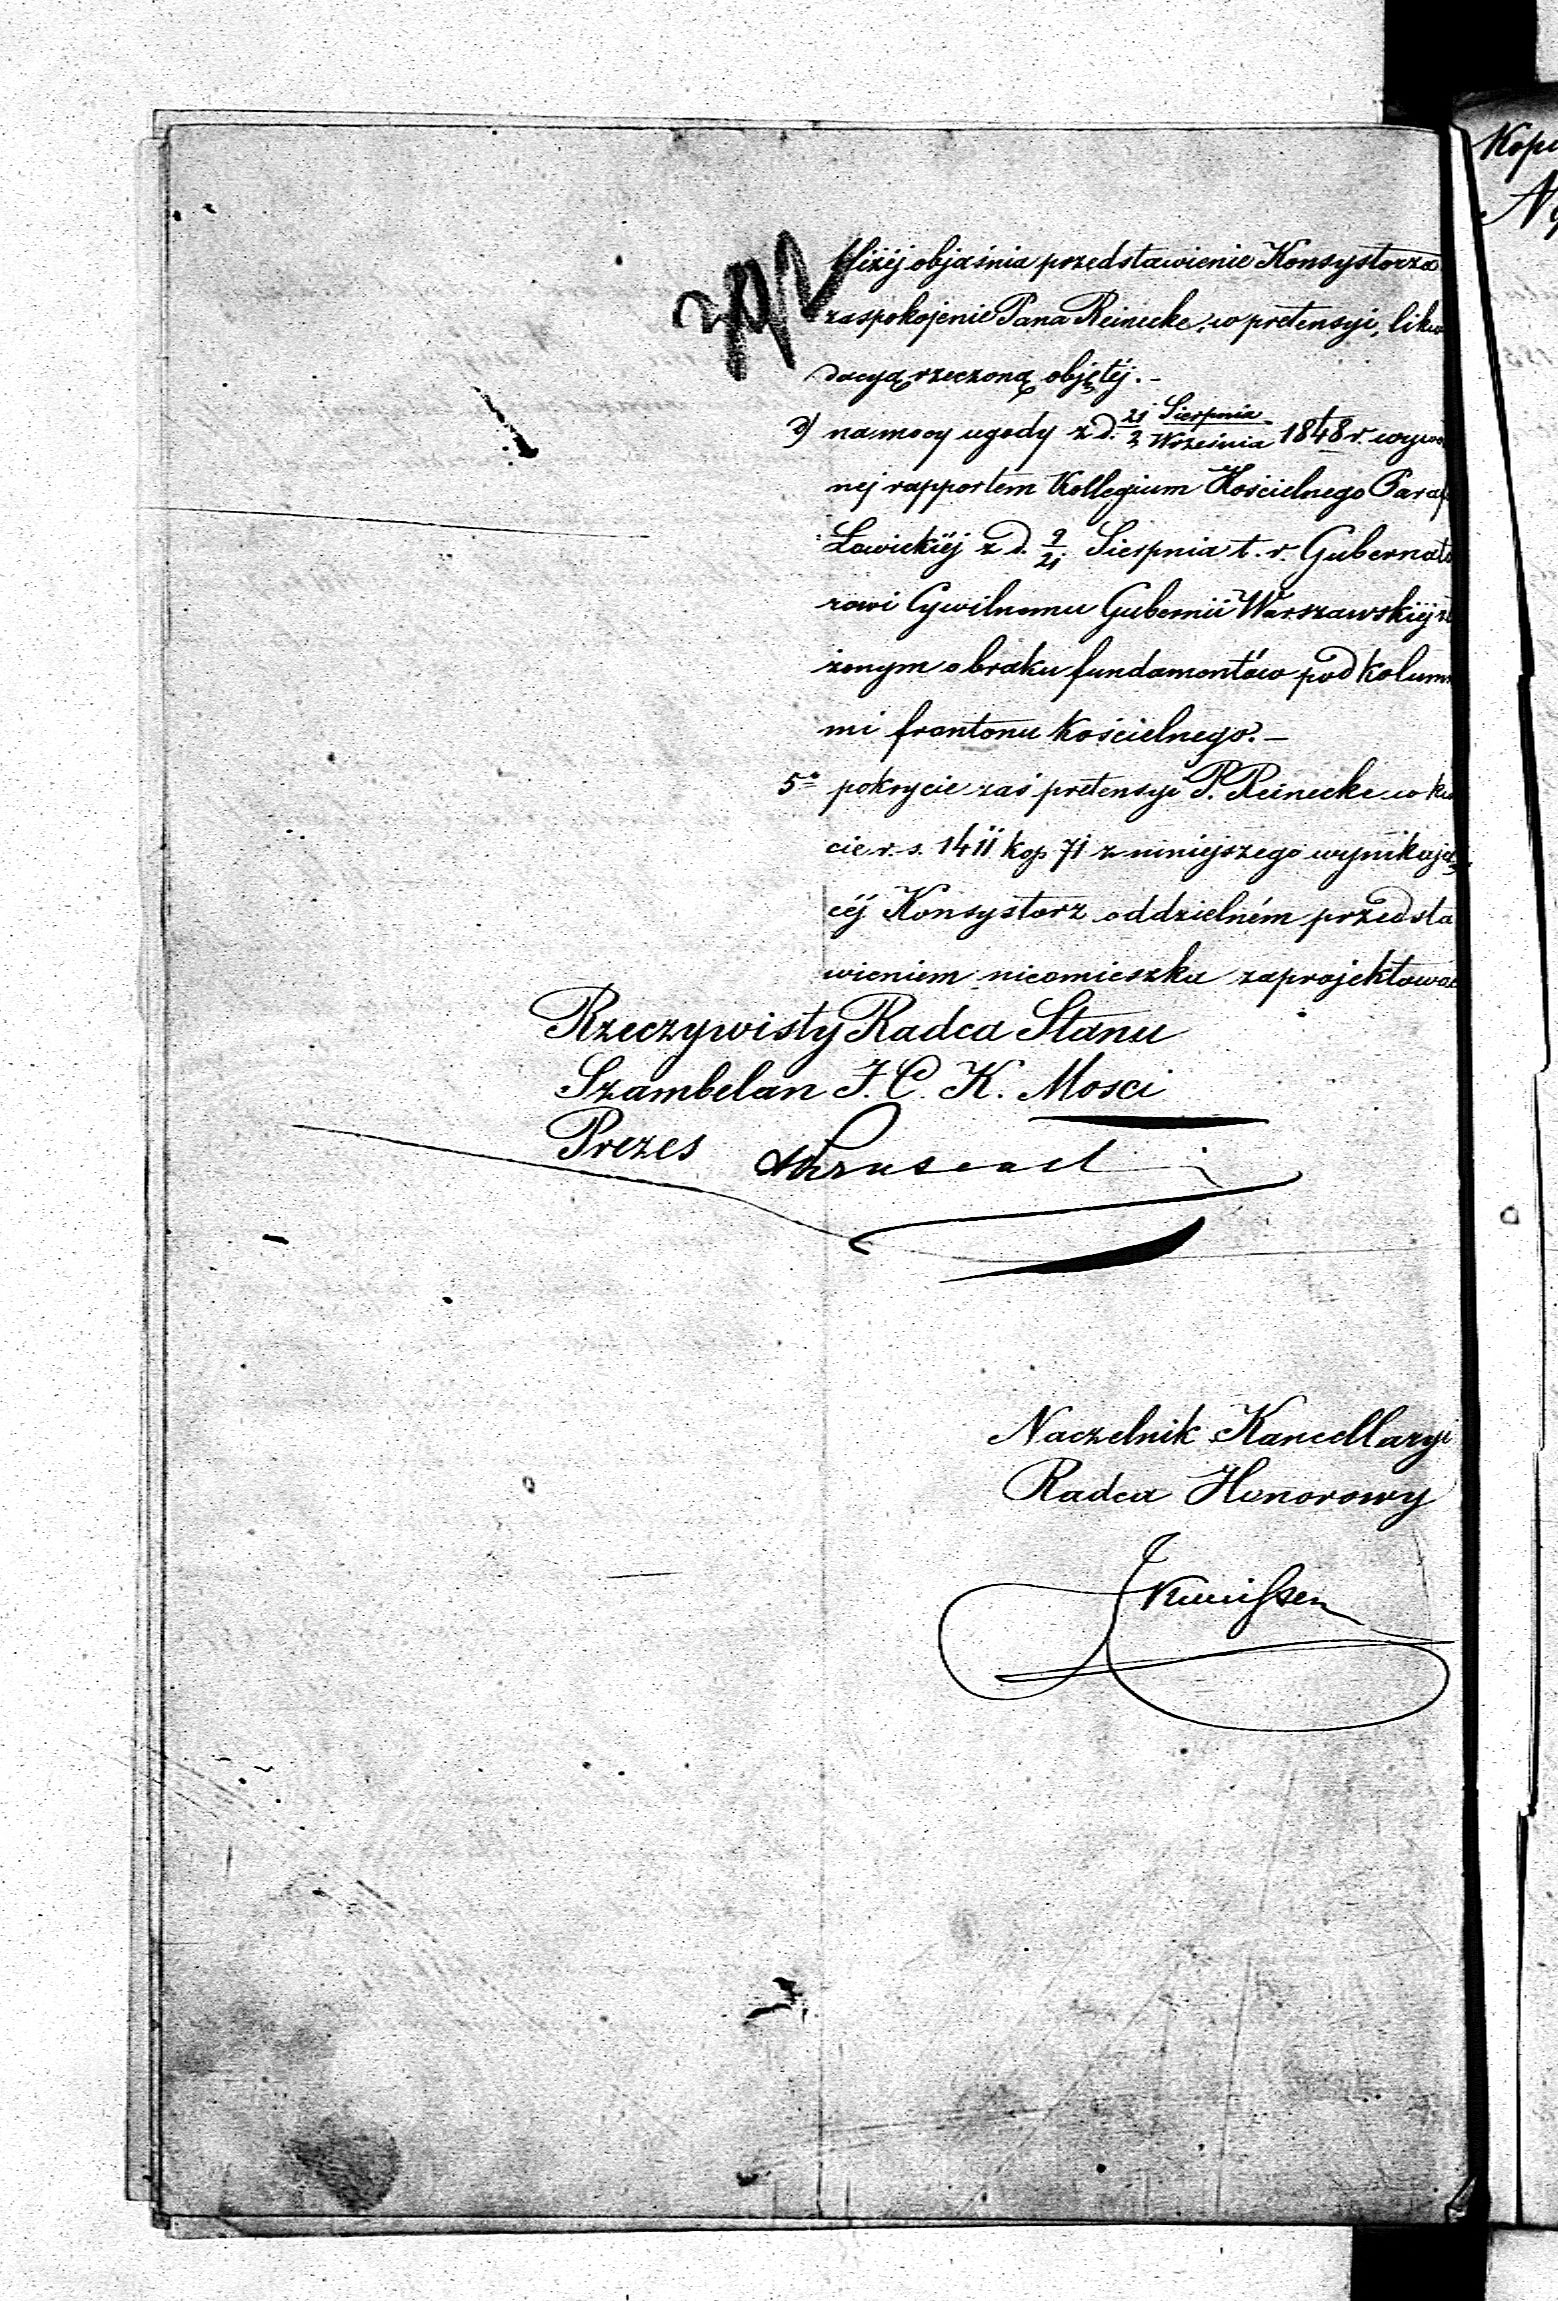 bliżéj objaśnia przedstawienie Konsystorza
zaspokojenie Pana Reinecke, w pretensyi, likw
dacyą rzeczoną objętéj. –
na mocy ugody z d. 21 Sierpnia / 2 Września 1848 r. wywo
nej rapportem Kollegium Kościelnego Paraf
Łowickiéj z d. 9/21 Sierpnia t. r. Gubernato
rowi Cywilnemu Gubernii Warszawskiéj
żonym o braku fundamentów pod kolum
mi frontonu kościelnego. –
5° pokrycie zaś pretensyi P. Reinecke w kw
cie r. s. 1411 kop 71 z niniejszego wynikają
céj Konsystorz oddzielném przedsta
wieniem nieomieszka zaprojektowa
Rzeczywisty Radca Stanu
Szambelan J. C. K. Mosci
Prezes
Naczelnik Kancellaryi
Radca Honorowy
Kopi